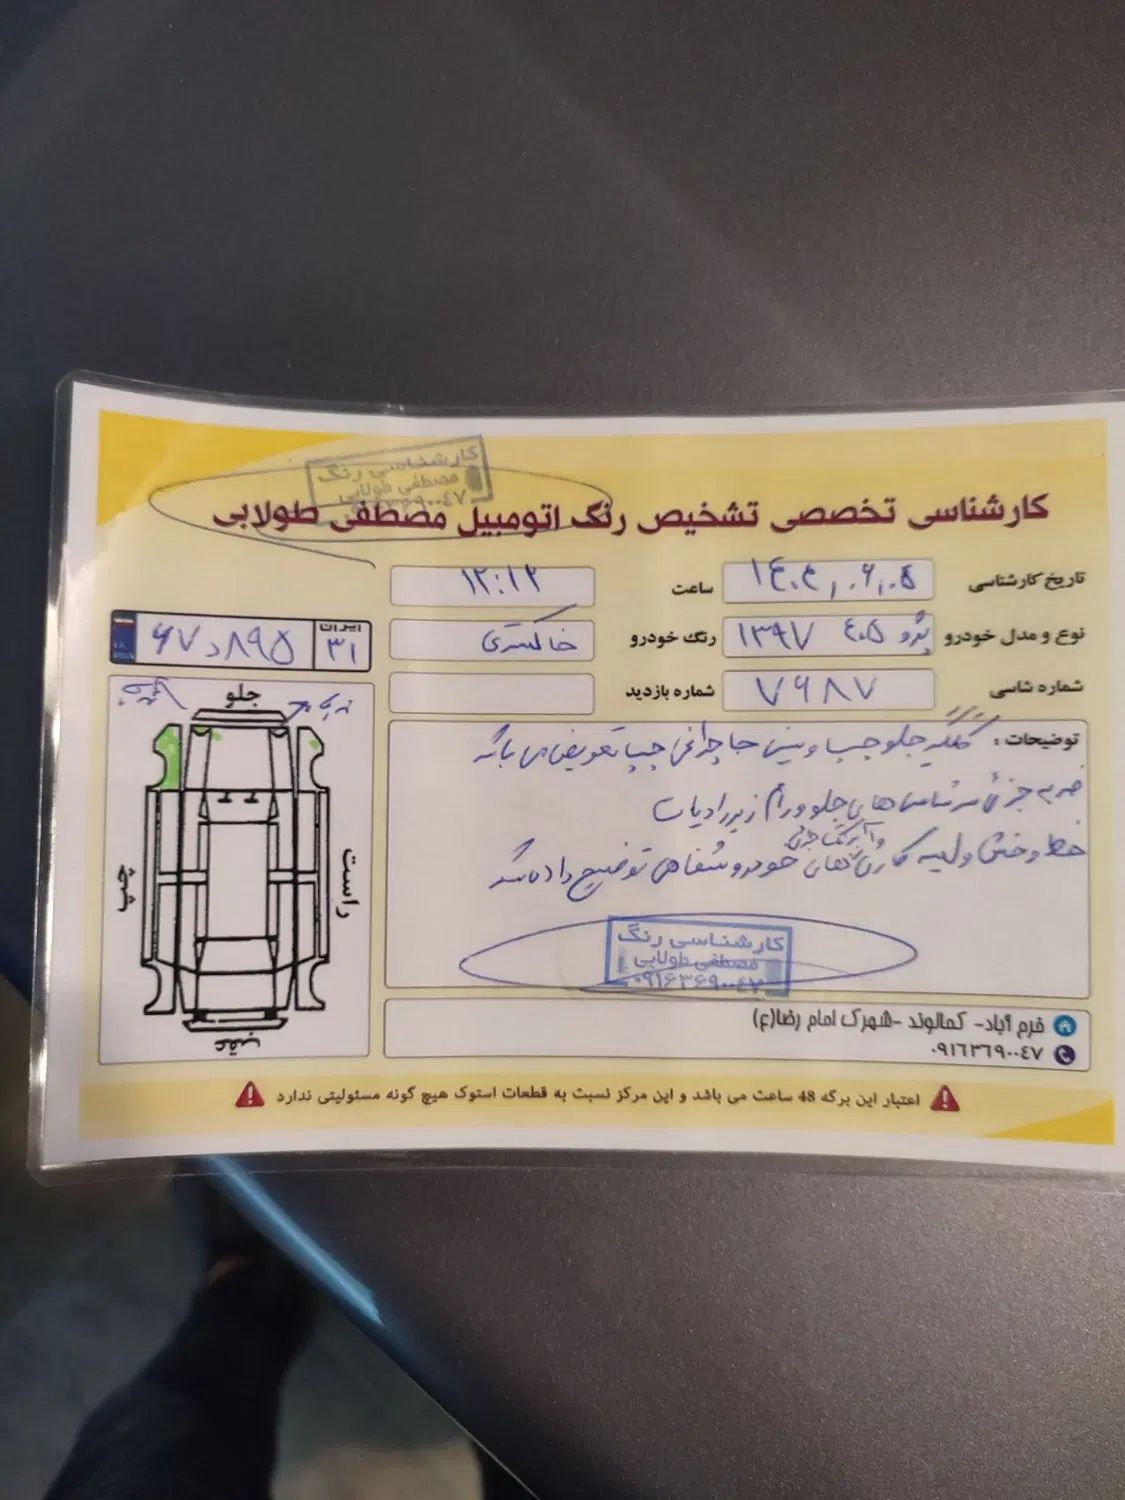 کارشناسی رنگ
مصطفی طولابی
کارشناسی تخصصی تشخیص رنگ اتومبیل مصطفی طولابی
تاریخ کارشناسی
ساعت ۱۲:۱۲
نوع و مدل خودرو پژو ۴۰۵ ۱۳۹۷ رنگ خودرو خاکستری
ایران ۳۱ ۸۹۵ د ۶۷
شماره شاسی ۷۶۸۷ شماره بازدید
توضیحات : گلگیر جلو چپ و سینی جا چراغی چپ تعویض می باشد
ضربه جزئی سر شاسی های جلو و رام زیر رادیات
خط و خش و لیسه گارنی های خودرو شفاهی توضیح داده شد
و آبرنگ جزئی
کارشناسی رنگ
مصطفی طولابی
۰۹۱۶۳۶۹۰۰۴۷
جلو
ضربه
ضربه
چپ
راست
عقب
خرم آباد- کمالوند -شهرک امام رضا(ع)
۰۹۱۶۳۶۹۰۰۴۷
اعتبار این برگه 48 ساعت می باشد و این مرکز نسبت به قطعات استوک هیچ گونه مسئولیتی ندارد